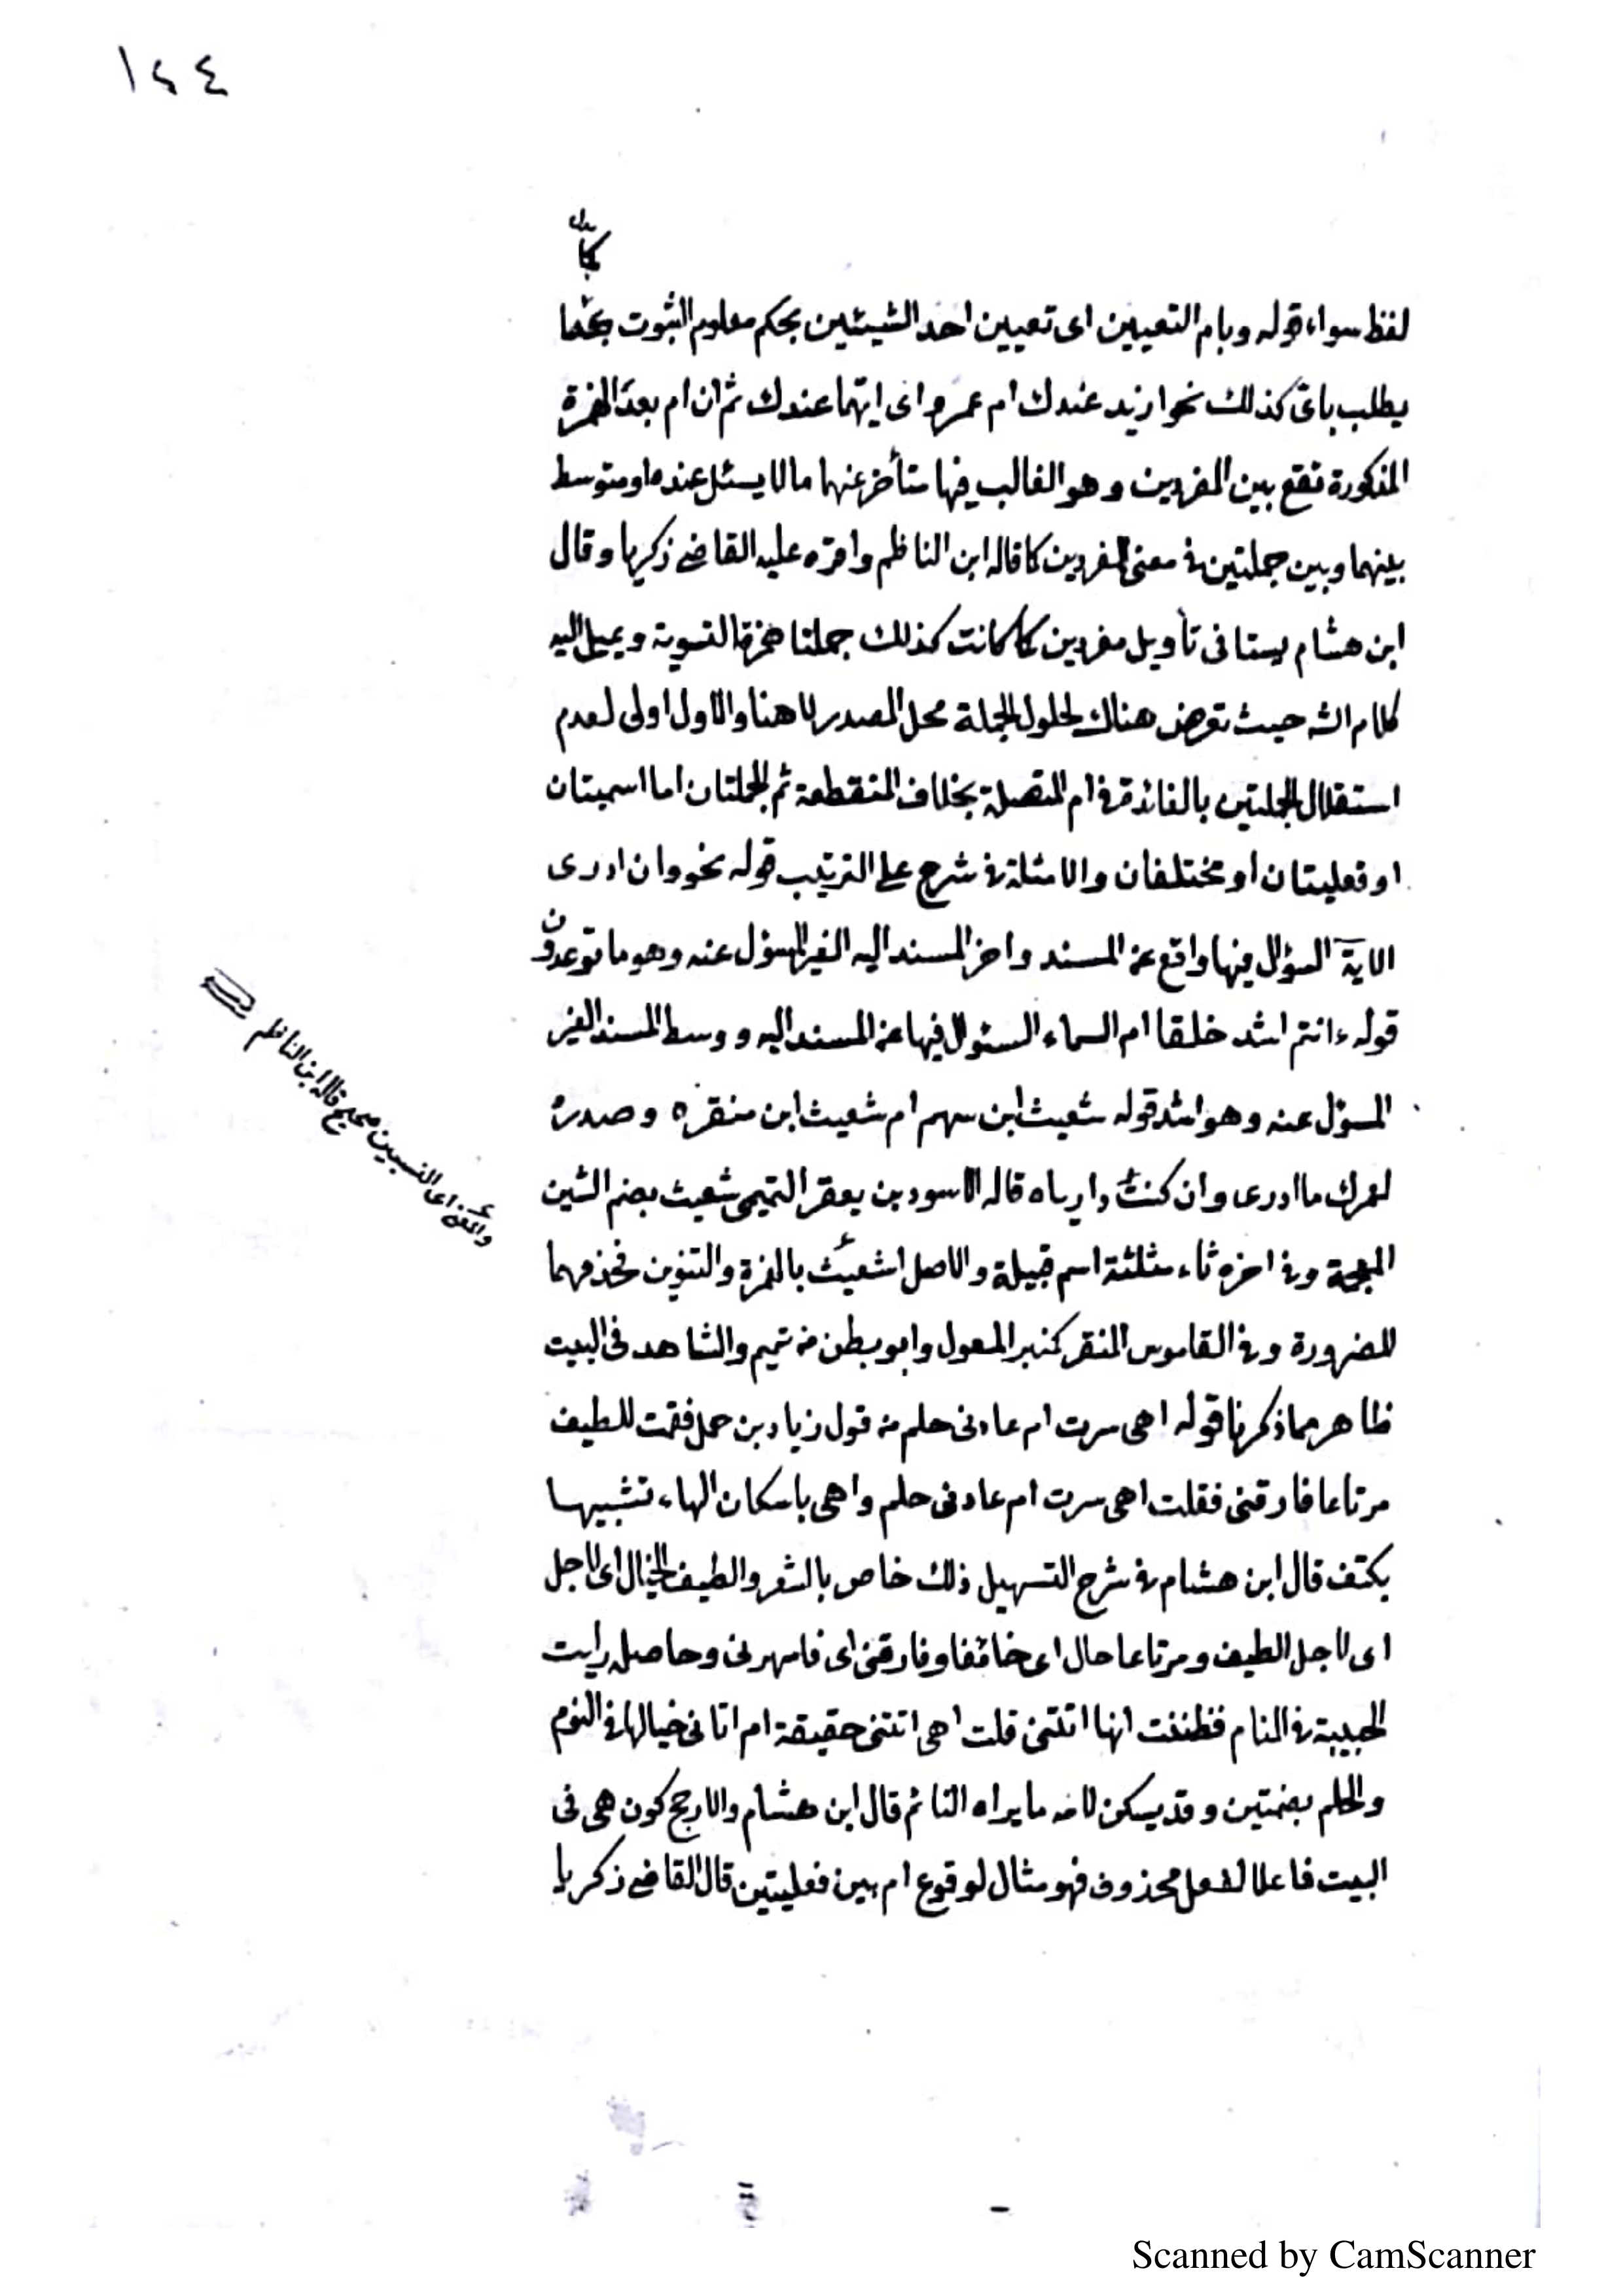 ١٤٤
كما
لفظ سواء قوله وبام التعيين اى تعيين احد الشيئين بحكم معلوم الثبوت
يطلب باى كذلك نحو ازيد عندك ام عمرو اى ايهما عندك ثم ان ام بعد الهمزة
المذكورة تقع بين المفردين وهو الغالب فيها متأخر عنهما ما لا يسئل عنه او متوسط
بينهما وبين جملتين فى معنى المفردين كما قاله ابن الناظم واقره عليه القاضى زكريا وقال
ابن هشام ليستا فى تأويل مفردين كما كانت كذلك جملتا همزة التسوية ويميل اليه
كلام الشـ حيث تعرض هناك لحلول الجملة محل المصدر لا هنا والاول اولى لعدم
استقلال الجملتين بالفائدة فى ام المتصلة بخلاف المنقطعة ثم الجملتان اما اسميتان
او فعليتان او مختلفان والامثلة فى شرح على الترتيب قوله نحو وان ادرى
الاية السؤال فيها واقع عن المسند واخر المسند اليه الغير المسؤل عنه وهو ما توعدون
قوله ءانتم اشد خلقا ام السماء السئوال فيها عن المسند اليه ووسط المسند الغير
المسؤل عنه وهو اشد قوله شعيث ابن سهم ام شعيث ابن منقره وصدره
لعمرك ما ادرى وان كنت داريا ه قاله الاسود بن يعفر التميمى شعيث بضم الشين
المعجمة وفى اخره ثاء مثلثة اسم قبيلة والاصل اشعيث بالهمزة والتنوين فحذفهما
للضرورة وفى القاموس المنقر كمنبر المعول وابو بطن من تميم والشاهد فى البيت
ظاهر مما ذكرنا قوله اهى سرت ام عادنى حلم من قول زياد بن حمل فقمت للطيف
مرتاعا فارقنى فقلت اهى سرت ام عادنى حلم واهى باسكان الهاء تشبيها
بكتف قال ابن هشام فى شرح التسهيل ذلك خاص بالشعر والطيف الخيال اى لاجل
اى لاجل الطيف ومرتاعا حال اى خائفا وفارقنى اى فاسهرنى وحاصله رايت
الحبيبة فى المنام فظننت انها اتتنى قلت اهى اتتنى حقيقة ام اتانى خيالها فى النوم
والحلم بضمتين وقد يسكن لامه ما يراه النائم قال ابن هشام والارجح كون هى فى
البيت فاعلا لفعل محذوف فهو مثال لوقوع ام بين فعليتين قال القاضى زكريا
والمعنى اى النسبين صحيح قاله ابن الناظم
Scanned by CamScanner